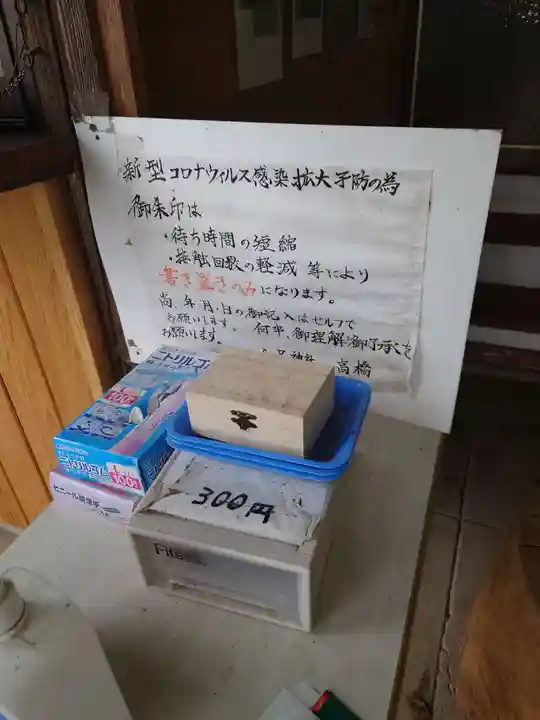 新型コロナウィルス感染拡大予防の為
御朱印は
・待ち時間の短縮
・接触回数の軽減 等により
書き置きのみになります。
尚、年、月、日の御記入はセルフで
お願いします。 何卒、御理解御了承を
お願いします。
神社 高橋
ニトリルゴム
100
ニトリルゴム
100
300円
Fits